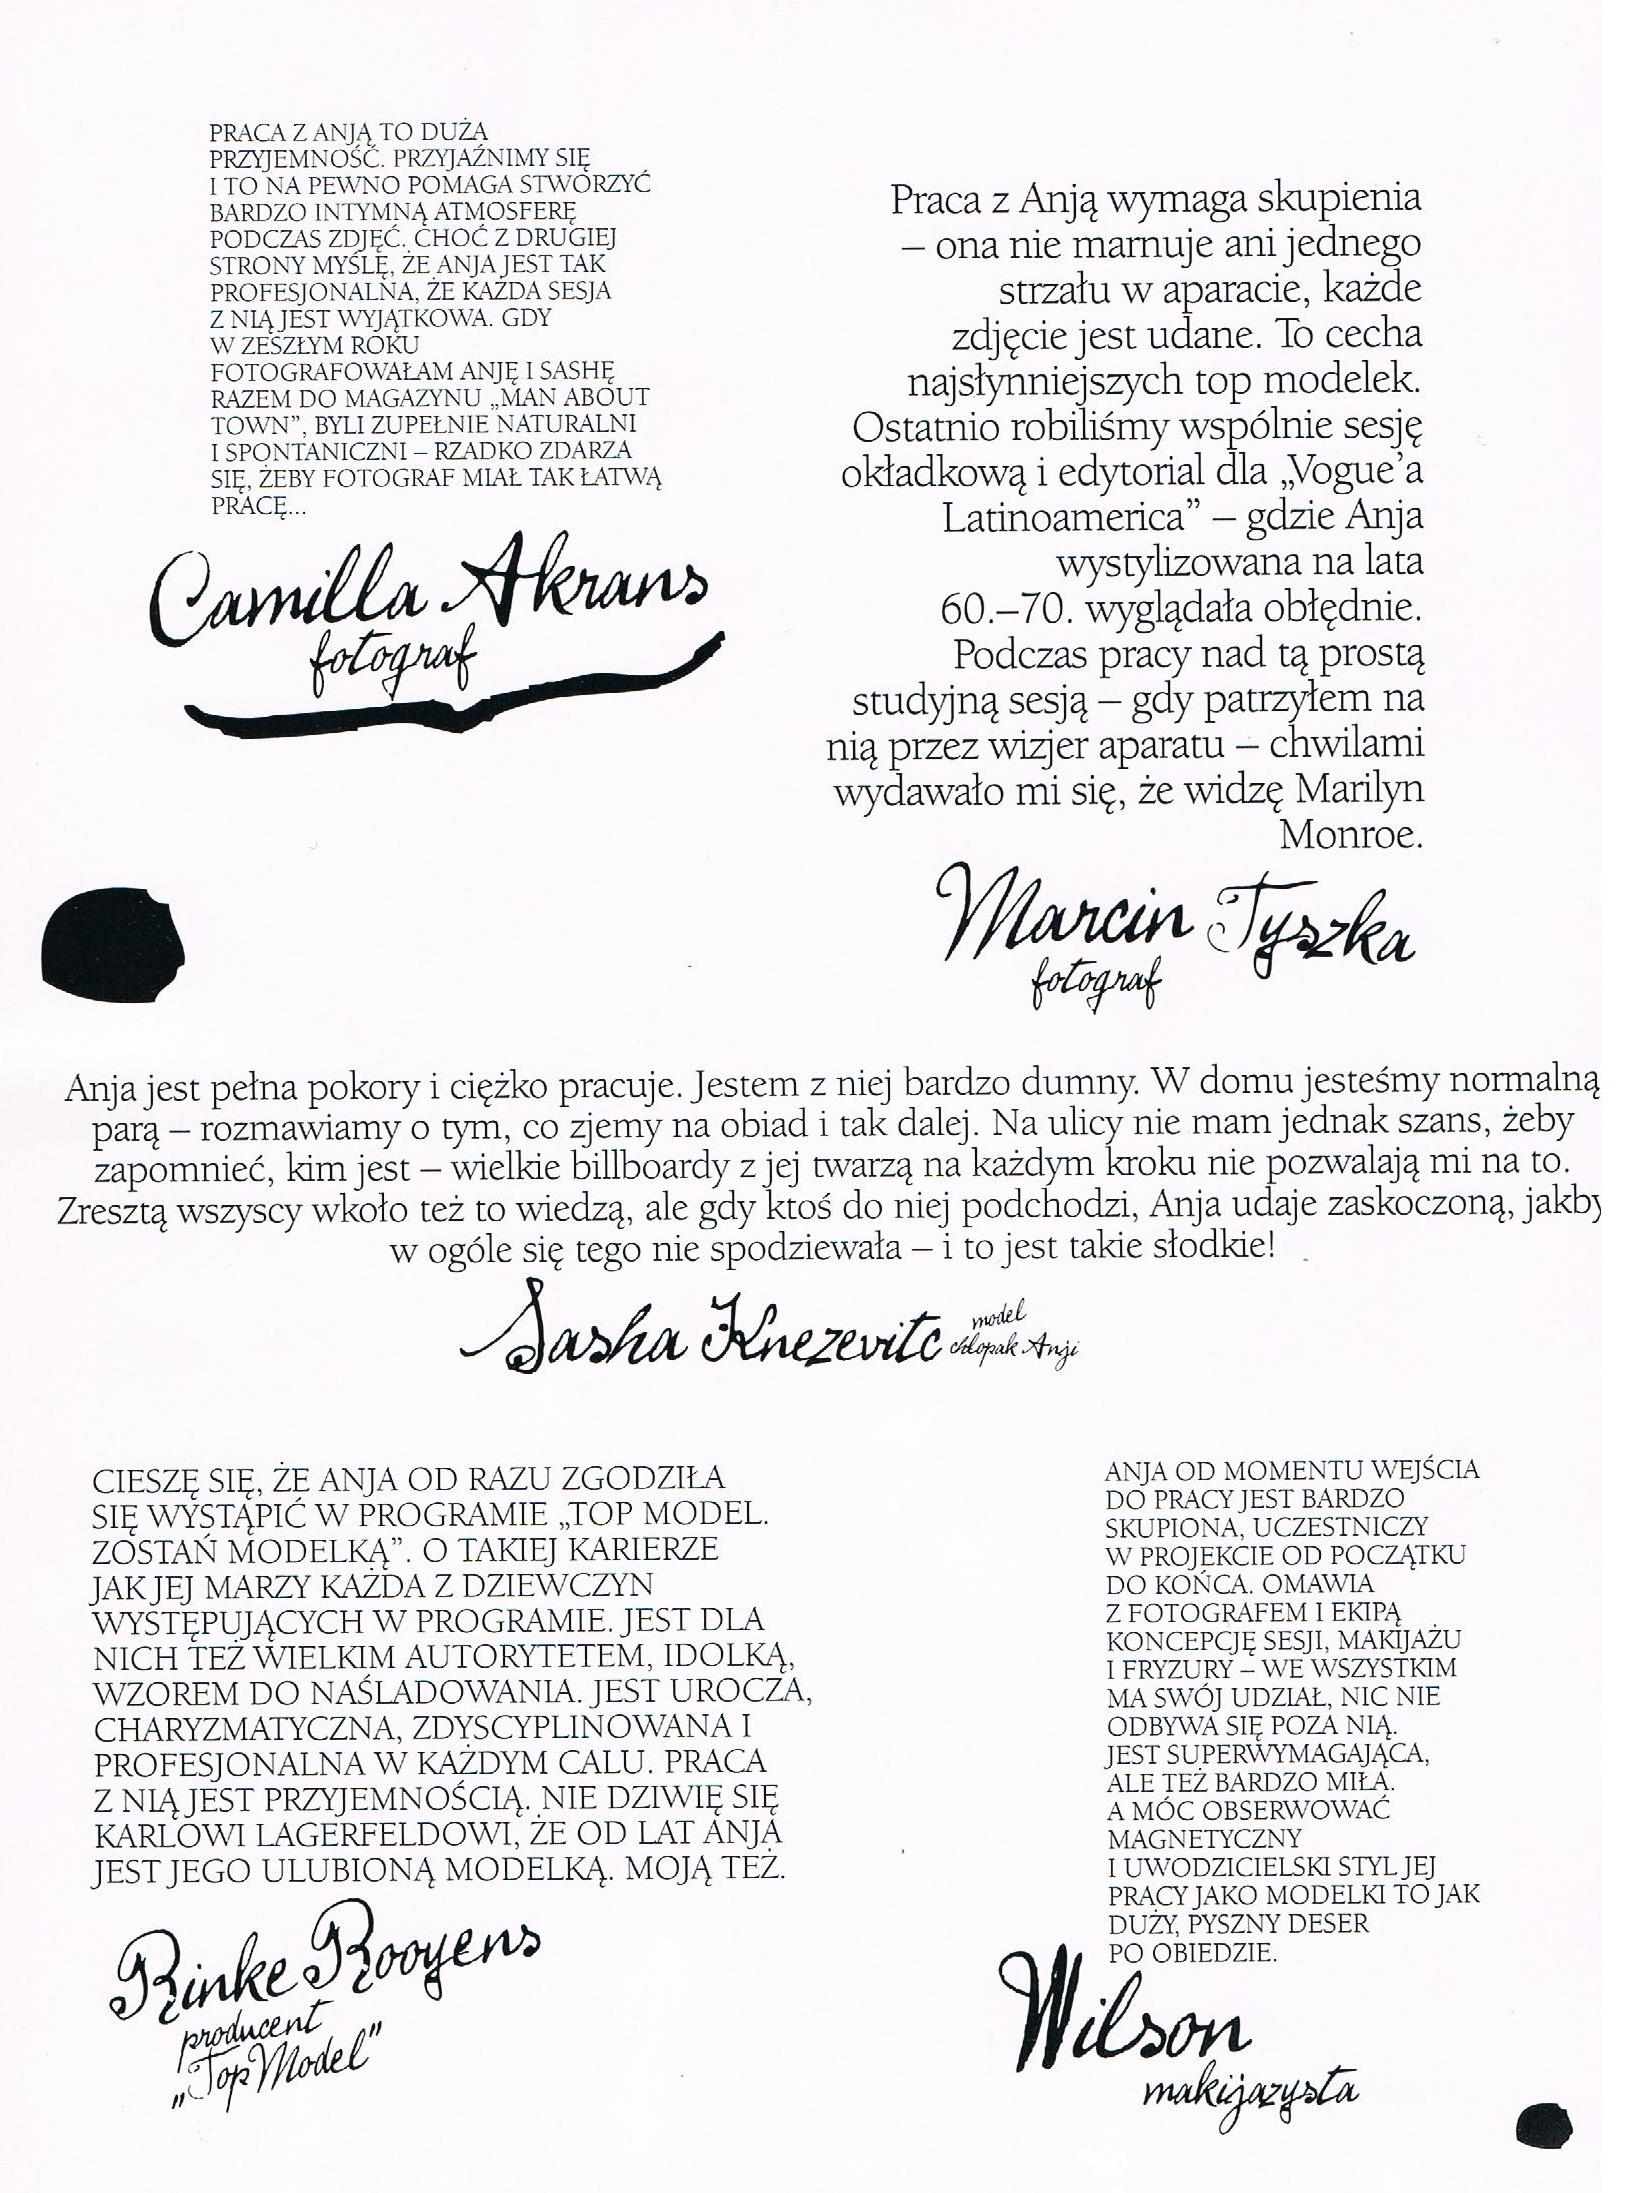 PRACA Z ANJĄ TO DUŻA
PRZYJEMNOŚĆ. PRZYJAŹNIMY SIĘ
I TO NA PEWNO POMAGA STWORZYĆ
BARDZO INTYMNĄ ATMOSFERĘ
PODCZAS ZDJĘĆ. CHOĆ Z DRUGIEJ
STRONY MYŚLĘ, ŻE ANJA JEST TAK
PROFESJONALNA, ŻE KAŻDA SESJA
Z NIĄ JEST WYJĄTKOWA. GDY
W ZESZŁYM ROKU
FOTOGRAFOWAŁAM ANJĘ I SASHĘ
RAZEM DO MAGAZYNU „MAN ABOUT
TOWN”, BYLI ZUPEŁNIE NATURALNI
I SPONTANICZNI – RZADKO ZDARZA
SIĘ, ŻEBY FOTOGRAF MIAŁ TAK ŁATWĄ
PRACĘ...
Camilla Akrans
fotograf
Praca z Anją wymaga skupienia
– ona nie marnuje ani jednego
strzału w aparacie, każde
zdjęcie jest udane. To cecha
najsłynniejszych top modelek.
Ostatnio robiliśmy wspólnie sesję
okładkową i edytorial dla „Vogue’a
Latinoamerica” – gdzie Anja
wystylizowana na lata
60.–70. wyglądała obłędnie.
Podczas pracy nad tą prostą
studyjną sesją – gdy patrzyłem na
nią przez wizjer aparatu – chwilami
wydawało mi się, że widzę Marilyn
Monroe.
Marcin Tyszka
fotograf
Anja jest pełna pokory i ciężko pracuje. Jestem z niej bardzo dumny. W domu jesteśmy normalną
parą – rozmawiamy o tym, co zjemy na obiad i tak dalej. Na ulicy nie mam jednak szans, żeby
zapomnieć, kim jest – wielkie billboardy z jej twarzą na każdym kroku nie pozwalają mi na to.
Zresztą wszyscy wkoło też to wiedzą, ale gdy ktoś do niej podchodzi, Anja udaje zaskoczoną, jakby
w ogóle się tego nie spodziewała – i to jest takie słodkie!
Sasha Knezevitc model
chłopak Anji
CIESZĘ SIĘ, ŻE ANJA OD RAZU ZGODZIŁA
SIĘ WYSTĄPIĆ W PROGRAMIE „TOP MODEL.
ZOSTAŃ MODELKĄ”. O TAKIEJ KARIERZE
JAK JEJ MARZY KAŻDA Z DZIEWCZYN
WYSTĘPUJĄCYCH W PROGRAMIE. JEST DLA
NICH TEŻ WIELKIM AUTORYTETEM, IDOLKĄ,
WZOREM DO NAŚLADOWANIA. JEST UROCZA,
CHARYZMATYCZNA, ZDYSCYPLINOWANA I
PROFESJONALNA W KAŻDYM CALU. PRACA
Z NIĄ JEST PRZYJEMNOŚCIĄ. NIE DZIWIĘ SIĘ
KARLOWI LAGERFELDOWI, ŻE OD LAT ANJA
JEST JEGO ULUBIONĄ MODELKĄ. MOJĄ TEŻ.
Rinke Rooyens
producent
„Top Model”
ANJA OD MOMENTU WEJŚCIA
DO PRACY JEST BARDZO
SKUPIONA, UCZESTNICZY
W PROJEKCIE OD POCZĄTKU
DO KOŃCA. OMAWIA
Z FOTOGRAFEM I EKIPĄ
KONCEPCJĘ SESJI, MAKIJAŻU
I FRYZURY – WE WSZYSTKIM
MA SWÓJ UDZIAŁ, NIC NIE
ODBYWA SIĘ POZA NIĄ.
JEST SUPERWYMAGAJĄCA,
ALE TEŻ BARDZO MIŁA.
A MÓC OBSERWOWAĆ
MAGNETYCZNY
I UWODZICIELSKI STYL JEJ
PRACY JAKO MODELKI TO JAK
DUŻY, PYSZNY DESER
PO OBIEDZIE.
Wilson
makijazysta